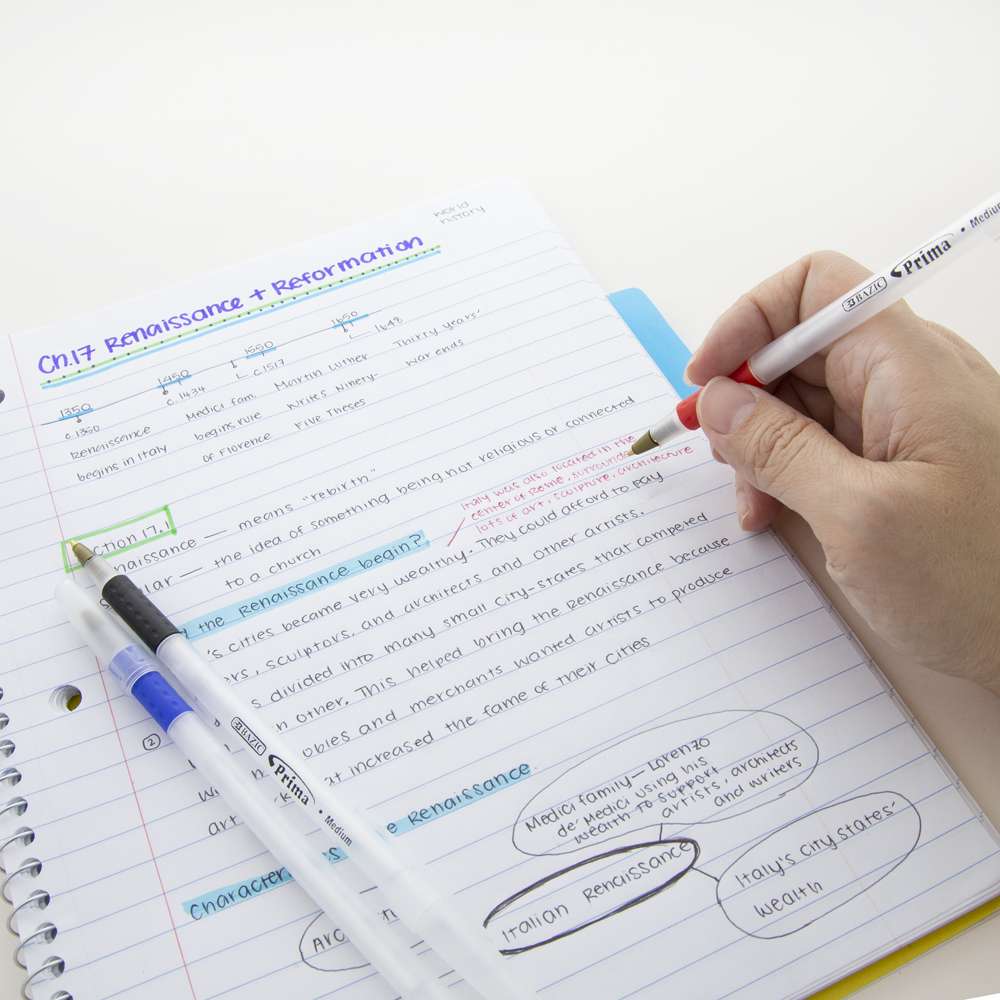 world
history
Ch.17 Renaissance + Reformation
1350
1450
1550
1650
c 1350
c. 1434
c.1517
1648
Renaissance
begins in Italy
Medici fam.
begins rule
of Florence
Martin Luther
writes Ninery-
Five Theses
Thirty years'
war ends
ction 17.1
naissance — means "rebirth"
lar — the idea of something being not religious or connected
to a church
Italy was also located in the
center of Rome, surrounded
lots of art, sculpture, architecture
the Renaissance begin?
's cities became very wealthy. They could afford to pay
rs, sculptors, and architects and other artists.
s divided into many small city-states that competed
n other. This helped bring the Renaissance because
obles and merchants wanted artists to produce
at increased the fame of their cities
2
art
e Renaissance
Medici family — Lorenzo
de' Medici using his
wealth to support
artists, architects
and writers
Italian Renaissance
Italy's city states'
wealth
Character
s
Arc
BAZIC Prima • Medium
BAZIC Prima • Medium